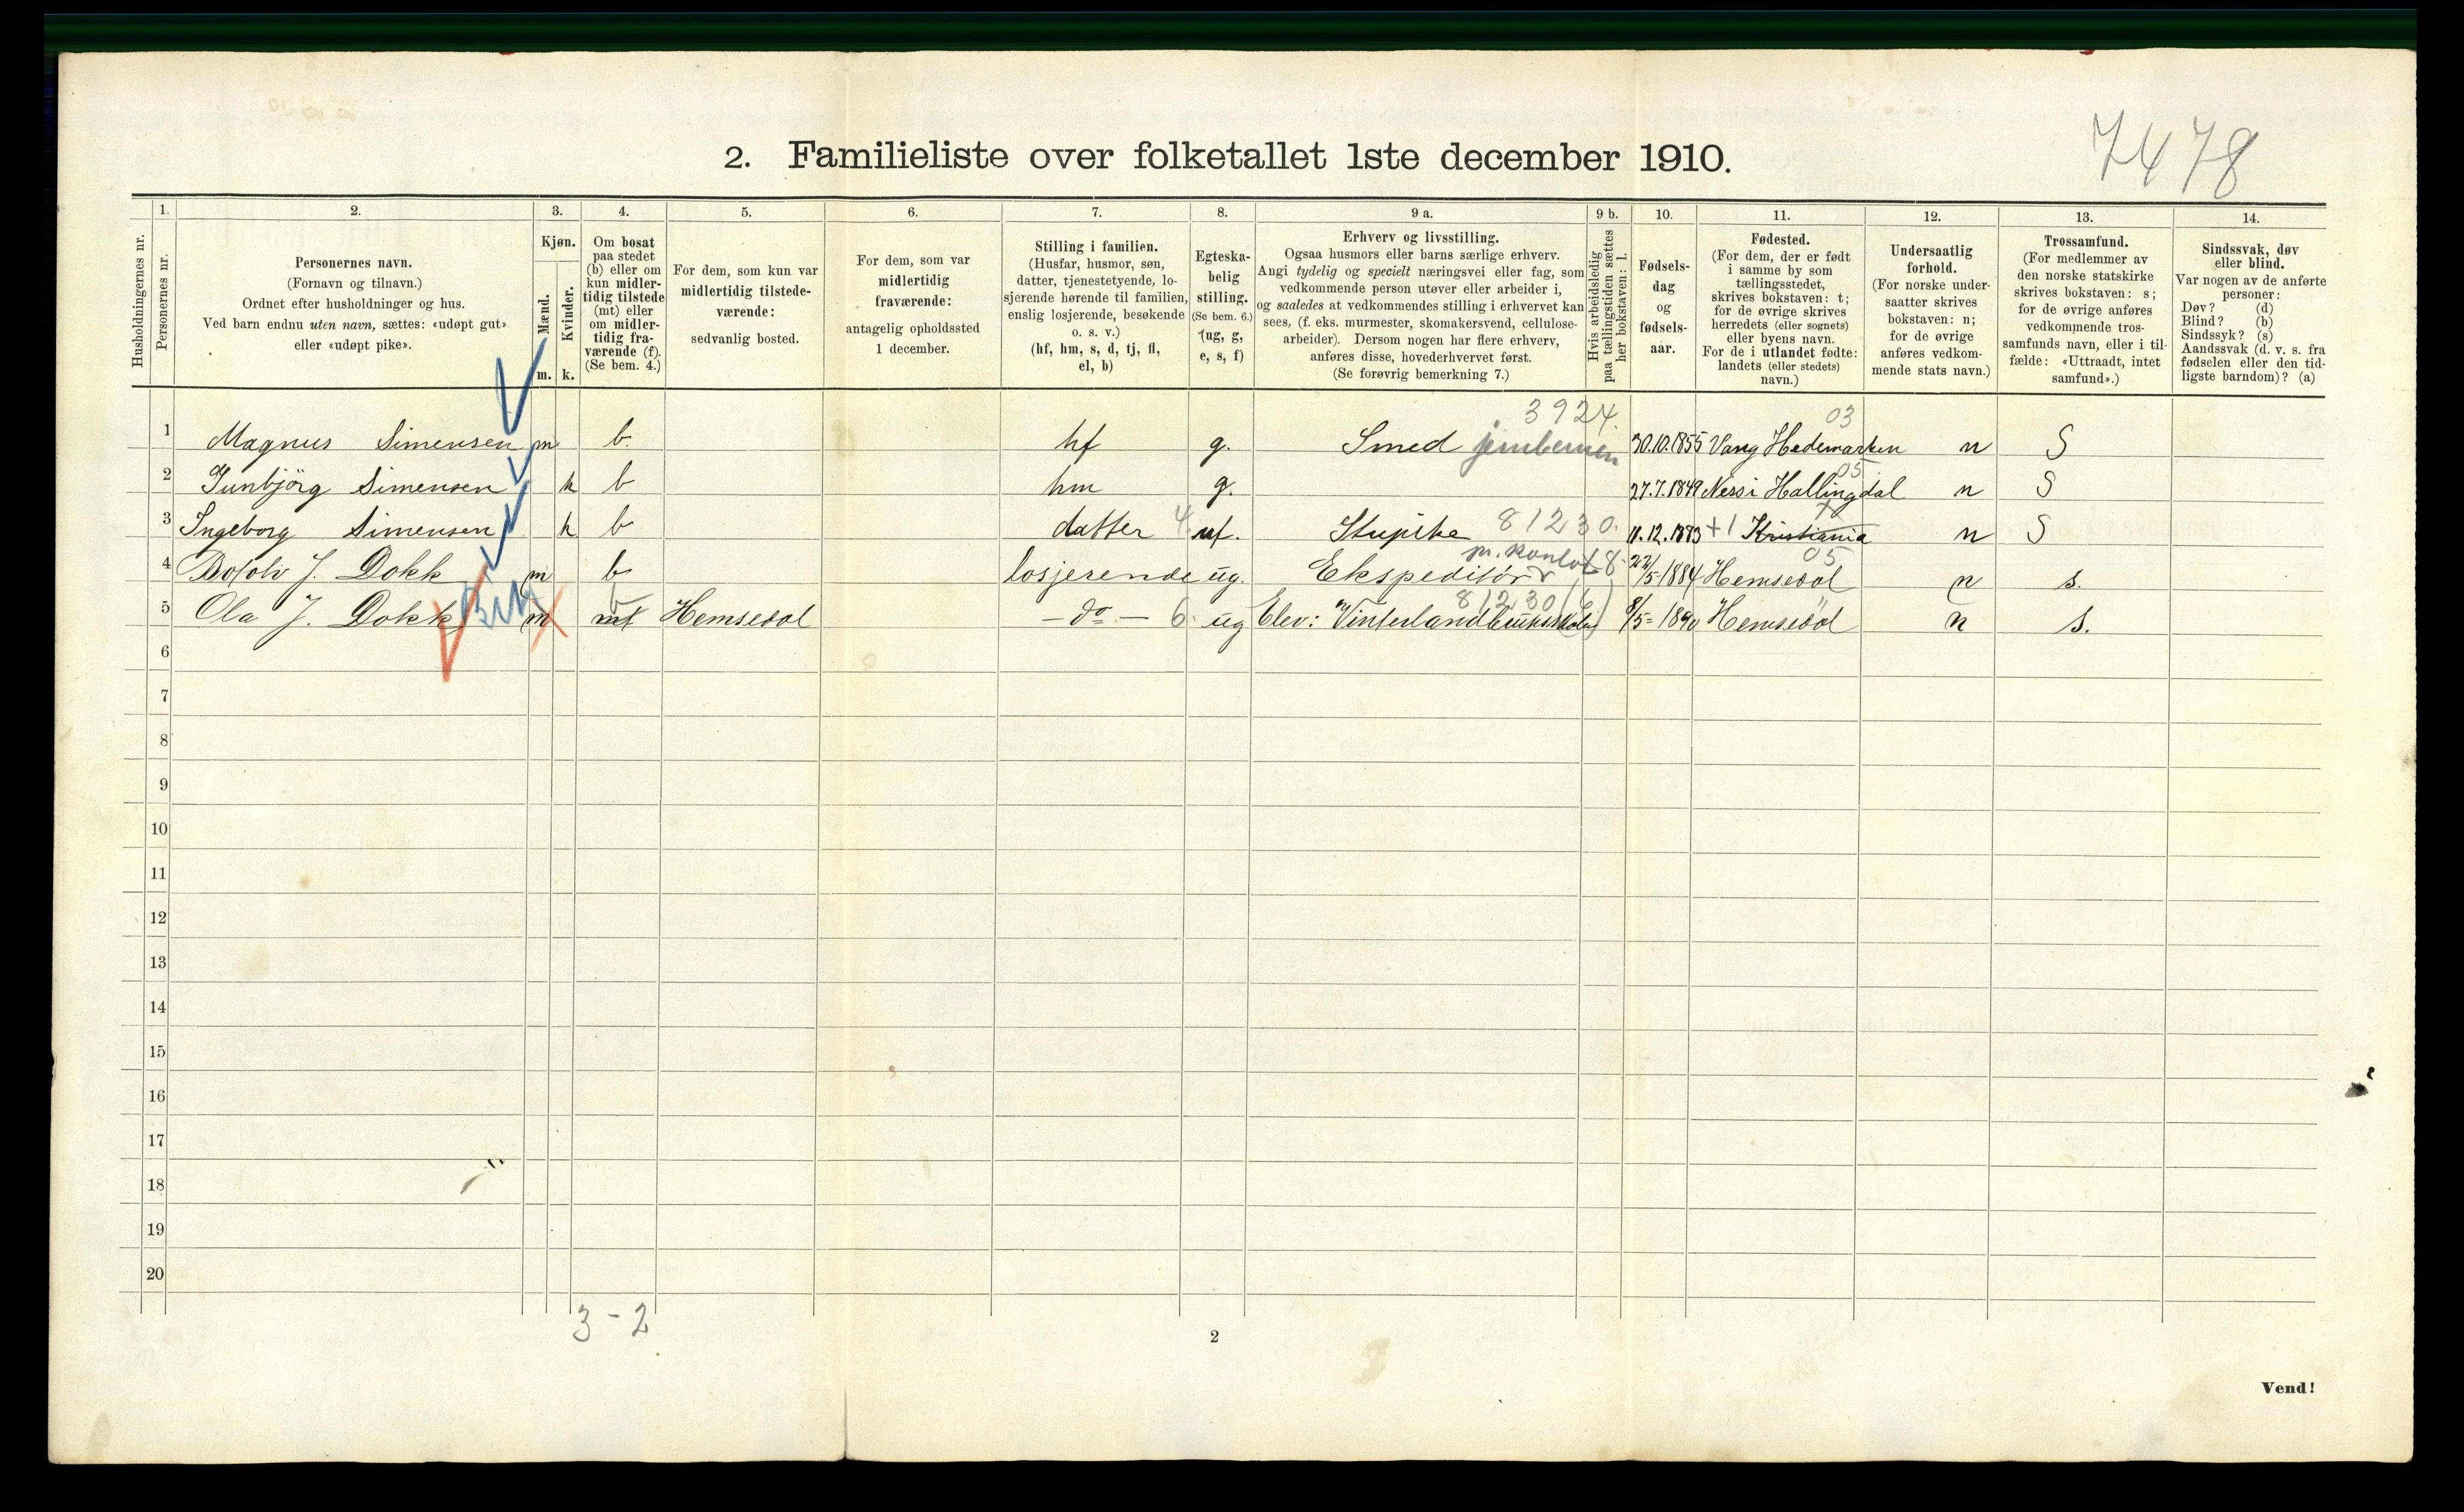 7478
2. Familieliste over folketallet 1ste december 1910.
Husholdningernes nr.
1.
Personernes nr.
2.
Personernes navn.
(Fornavn og tilnavn.)
Ordnet efter husholdninger og hus.
Ved barn endnu uten navn, sættes: «udøpt gut»
eller «udøpt pike».
3.
Kjøn.
Mænd.
m.
Kvinder.
k.
4.
Om bosat
paa stedet
(b) eller om
kun midler-
tidig tilstede
(mt) eller
om midler-
tidig fra-
værende (f).
(Se bem. 4.)
5.
For dem, som kun var
midlertidig tilstede-
værende:
sedvanlig bosted.
6.
For dem, som var
midlertidig
fraværende:
antagelig opholdssted
1 december.
7.
Stilling i familien.
(Husfar, husmor, søn,
datter, tjenestetyende, lo-
sjerende hørende til familien,
enslig losjerende, besøkende
o. s. v.)
(hf, hm, s, d, tj, fl,
el, b)
8.
Egteska-
belig
stilling.
(Se bem. 6.)
(ug, g,
e, s, f)
9 a.
Erhverv og livsstilling.
Ogsaa husmors eller barns særlige erhverv.
Angi tydelig og specielt næringsvei eller fag, som
vedkommende person utøver eller arbeider i,
og saaledes at vedkommendes stilling i erhvervet kan
sees, (f. eks. murmester, skomakersvend, cellulose-
arbeider). Dersom nogen har flere erhverv,
anføres disse, hovederhvervet først.
(Se forøvrig bemerkning 7.)
9 b.
Hvis arbeidsledig
paa tællingstiden sættes
her bokstaven: l.
10.
Fødsels-
dag
og
fødsels-
aar.
11.
Fødested.
(For dem, der er født
i samme by som
tællingsstedet,
skrives bokstaven: t;
for de øvrige skrives
herredets (eller sognets)
eller byens navn.
For de i utlandet fødte:
landets (eller stedets)
navn.)
12.
Undersaatlig
forhold.
(For norske under-
saatter skrives
bokstaven: n;
for de øvrige
anføres vedkom-
mende stats navn.)
13.
Trossamfund.
(For medlemmer av
den norske statskirke
skrives bokstaven: s;
for de øvrige anføres
vedkommende tros-
samfunds navn, eller i til-
fælde: «Uttraadt, intet
samfund».)
14.
Sindssvak, døv
eller blind.
Var nogen av de anførte
personer:
Døv? (d)
Blind? (b)
Sindssyk? (s)
Aandssvak (d. v. s. fra
fødselen eller den tid-
ligste barndom)? (a)
3924. 03
1 Magnus Simensen m b. hf g. Smed 30.10.1855 Vang Hedemarken n S
05
2 Gunbjörg Simensen k b hm g. 27.7.1849 Nes i Hallingdal n S
3 Ingeborg Simensen k b datter 4 uf. Stupike 81230. 11.12.1883 +1 Kristiania n S
05
4 Botolv J. Dokk m b losjerende ug. Ekspeditör 22/5-1884 Hemsedol n s.
81230 (6)
5 Ola J. Dokk m mt Hemsedol -do- 6. ug Elev: Vinterlandbruksskolen 8/5=1890 Hemsedol n s.
6
7
8
9
10
11
12
13
14
15
16
17
18
19
20
3-2
2
Vend!